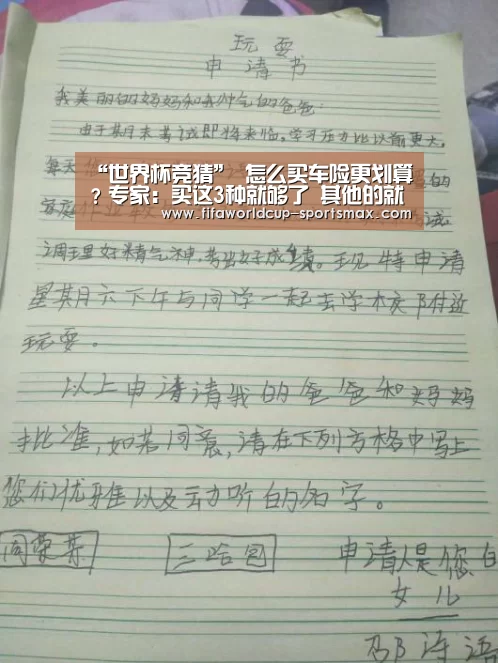 玩耍
申请书
我美丽的妈妈和我帅气的爸爸:
由于其月末考试即将来临,学习压力比以前更大,
每天
“世界杯竞猜” 怎么买车险更划算
?专家:买这3种就够了 其他的就
www.fifaworldcup-sportsmax.com
调理好精气神,考出好成绩。现特申请
星期六下午与同学一起去学校附近
玩耍。
以上申请请我的爸爸和妈妈
批准,如若同意,请在下列方格中写上
您们优雅以及动听的名字。
三哈包 申请人是您的
女儿
诗语